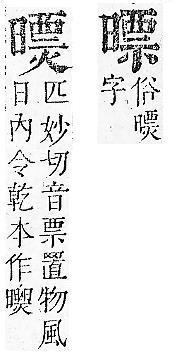 㬓
俗
字
匹妙切音票置物風
日內令乾本作